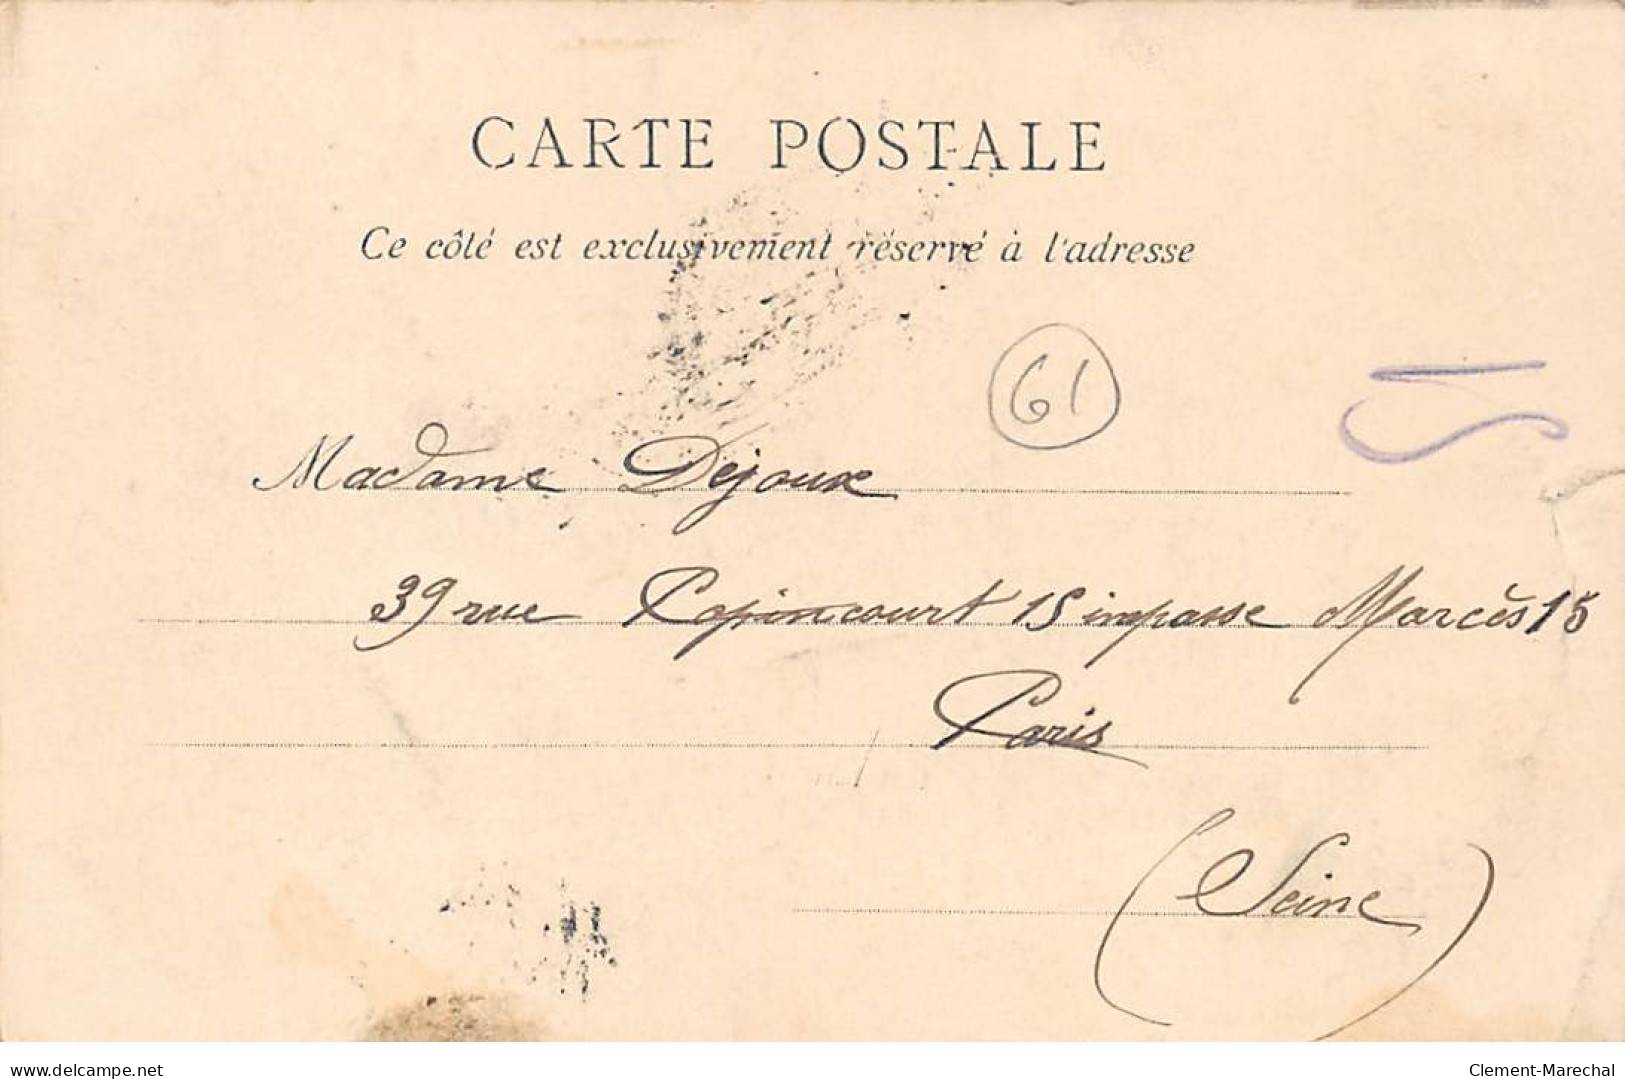 CARTE POSTALE
Ce côté est exclusivement réservé à l'adresse
61
Madame Dejoux
39 rue Popincourt 15 impasse Marcès 15
Paris
(Seine)
www.delcampe.net
Clement-Marechal